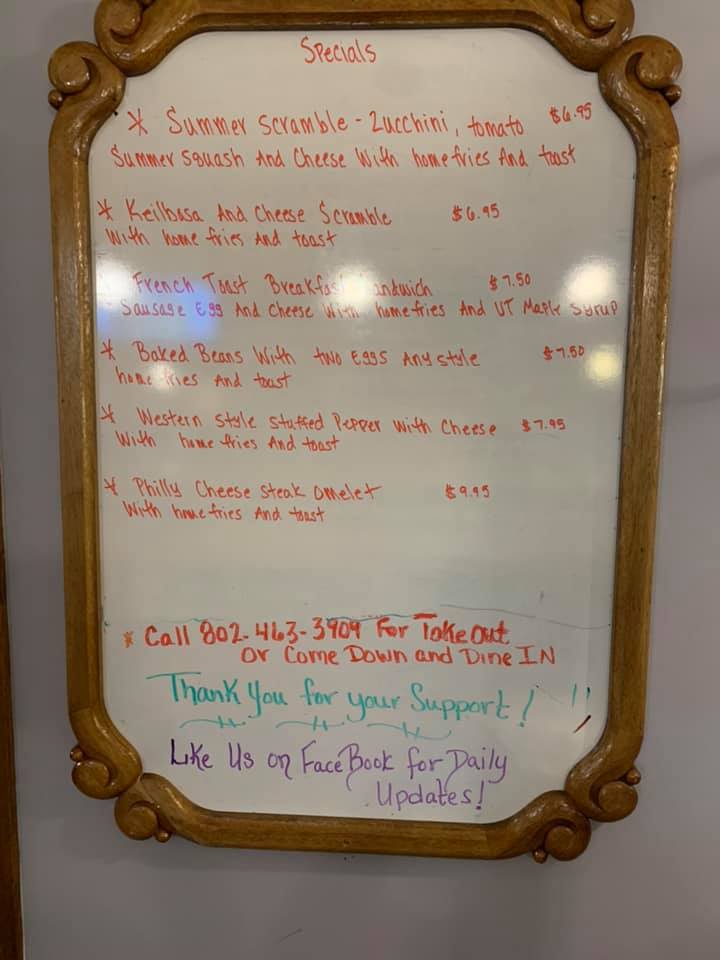 Specials
* Summer Scramble - Zucchini, tomato $6.95
Summer Squash And Cheese With homefries And toast
* Keilbasa And Cheese Scramble $6.95
With home fries And toast
French Toast Breakfast Sandwich $7.50
Sausage Egg And Cheese With homefries And VT Maple Syrup
* Baked Beans With two Eggs Any style $7.50
home fries And toast
* Western Style Stuffed Pepper with Cheese $7.95
With home fries And toast
* Philly Cheese Steak Omelet $9.95
With home fries And toast
* Call 802-463-3909 For Take Out
Or Come Down and Dine IN
Thank You for your Support!
Like Us on FaceBook for Daily
Updates!